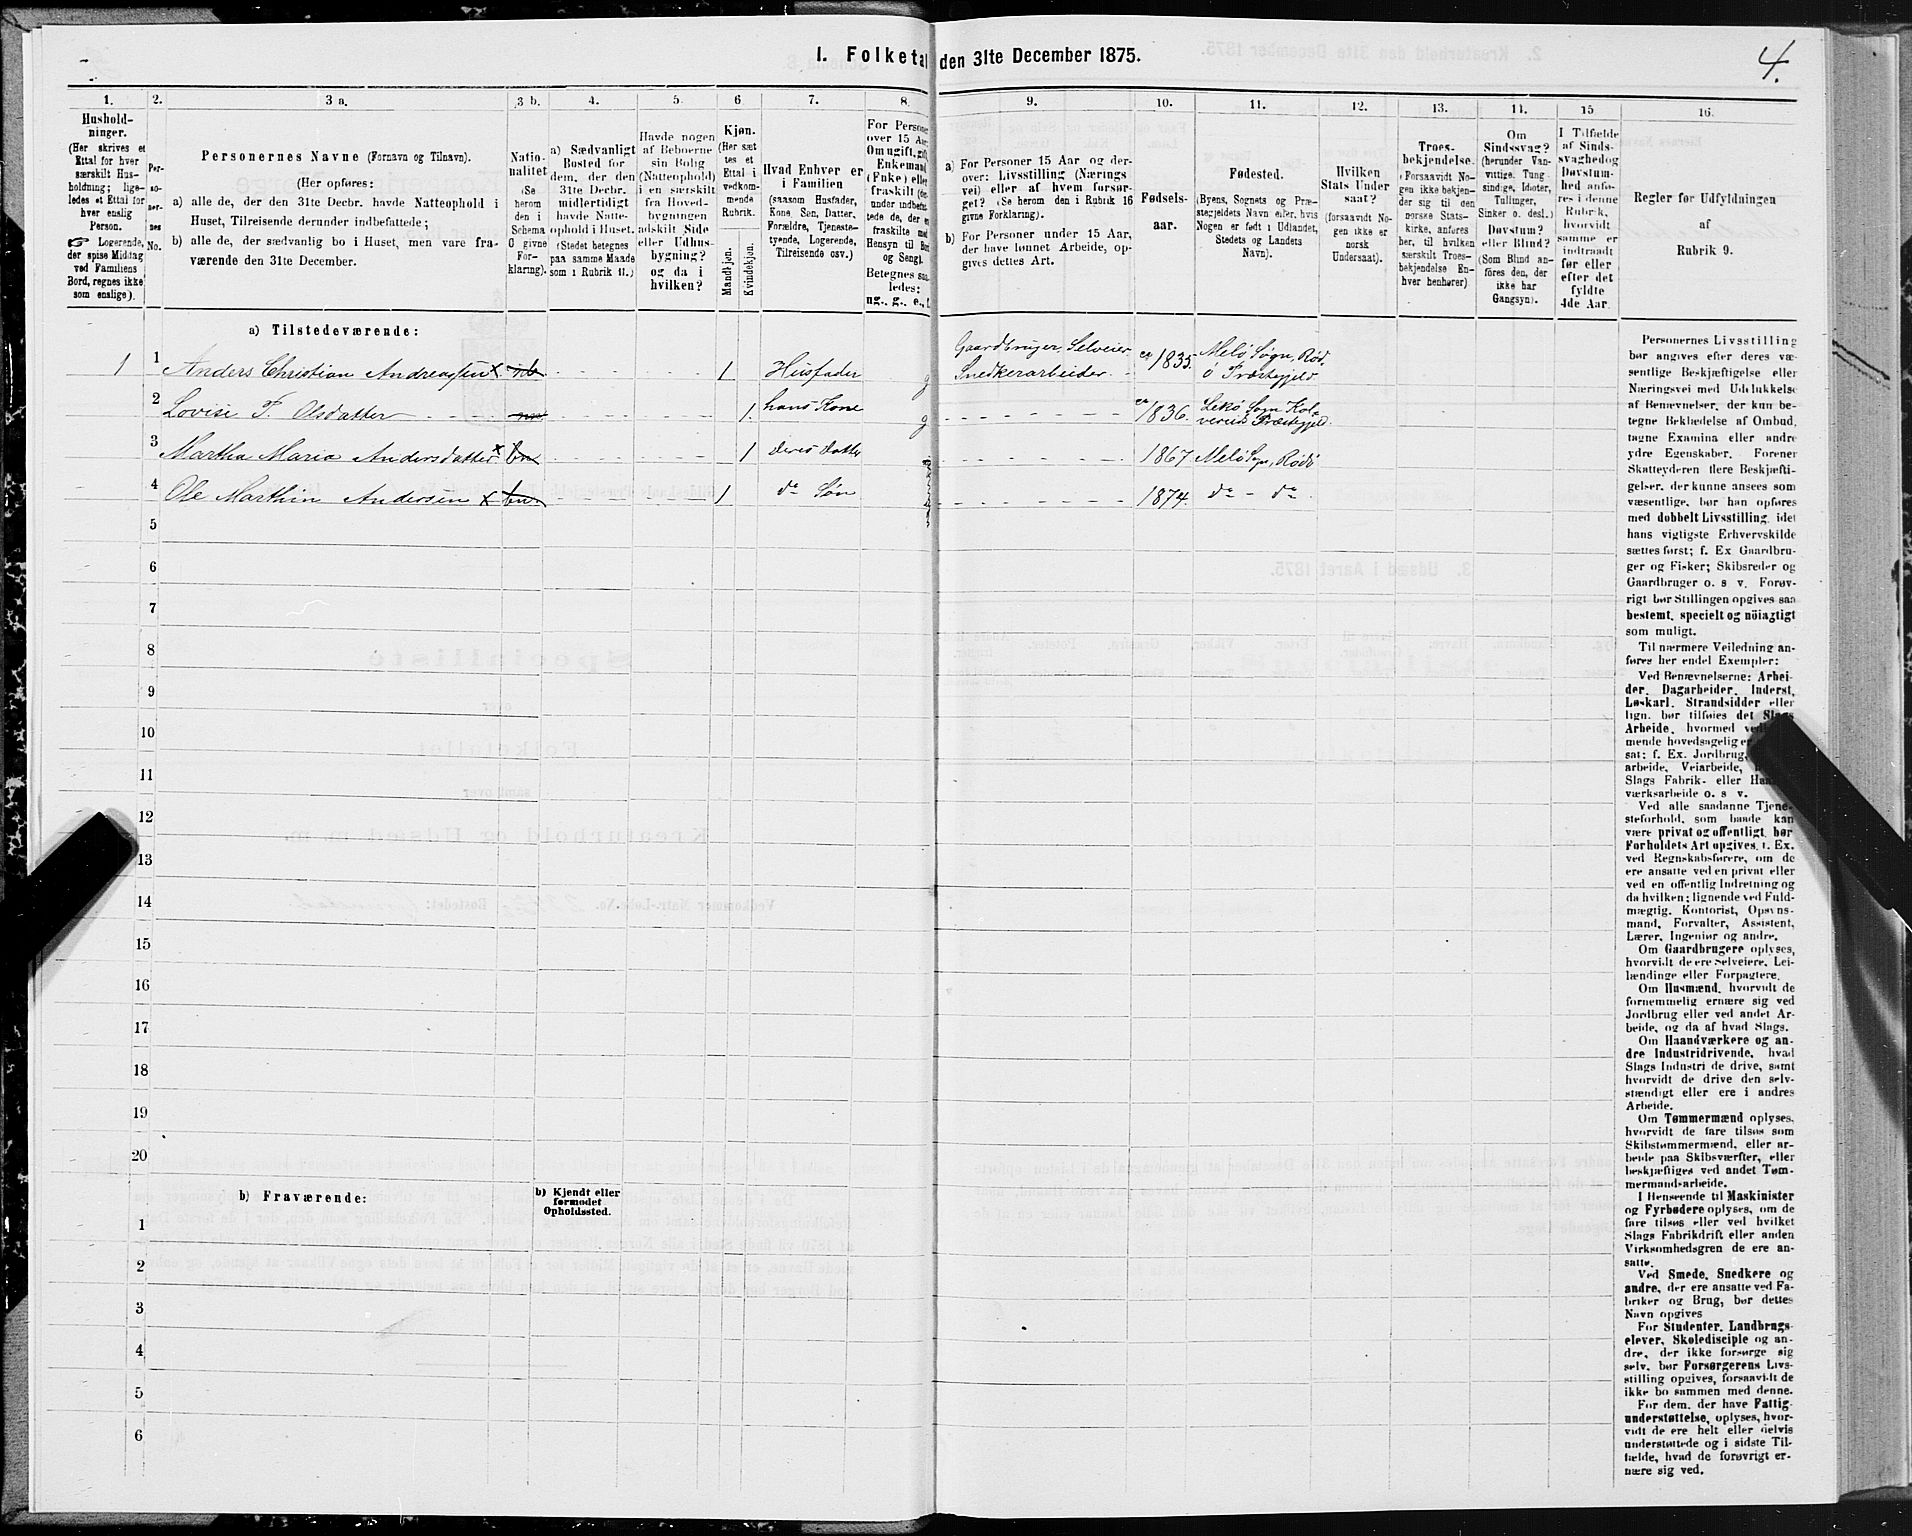 1. Folketal den 31te December 1875.
4.
1. 2. 3 a. 3 b. 4. 5. 6 7. 8. 9. 10. 11. 12. 13. 14. 15 16.
Hushold-
ninger.
(Her skrives et
Ettal for hver
særskilt Hus-
holdning; lige-
ledes et Ettal for
hver enslig
Person.
☞ Logerende,
der spise Middag
ved Familiens
Bord, regnes ikke
som enslige).
Per-
so-
ner-
nes
No.
Personernes Navne (Fornavn og Tilnavn).
(Her opføres:
a) alle de, der den 31te Decbr. havde Natteophold i
Huset, Tilreisende derunder indbefattede;
b) alle de, der sædvanlig bo i Huset, men vare fra-
værende den 31te December.
Natio-
nalitet
(Se
herom
den i
Schema
O givne
For-
klaring).
a) Sædvanligt
Bosted for
dem, der den
31te Decbr.
midlertidigt
havde Natte-
ophold i Huset.
(Stedet betegnes
paa samme Maade
som i Rubrik 11.)
Havde nogen
af Beboerne
sin Bolig
(Natteophold)
i en særskilt
fra Hoved-
bygningen
adskilt Side
eller Udhus-
bygning?
og da i
hvilken?
Kjøn.
(Her sæt
tes et
Ettal i
vedkom-
mende
Rubrik.
Mandkjøn.
Kvindekjøn.
Hvad Enhver er
i Familien
(saasom Husfader,
Kone, Søn, Datter,
Forældre, Tjeneste-
tyende, Logerende,
Tilreisende osv.)
For Persone
over 15 Aar
Om ugift, gift,
Enkemand
(Enke) eller
fraskilt
under indbefat
tede de, der
fraskilte med
Hensyn til Bord
og Seng).
Betegnes saa
ledes:
ug., g., e., f.
a) For Personer 15 Aar og der-
over: Livsstilling (Nærings
vei) eller af hvem forsør-
get? (Se herom den i Rubrik 16
givne Forklaring).
b) For Personer under 15 Aar,
der have lønnet Arbeide, op-
gives dettes Art.
Fødsels-
aar.
Fødested.
(Byens, Sognets og Præ-
stegjeldets Navn eller, hvis
Nogen er født i Udlandet,
Stedets og Landets
Navn).
Hvilken
Stats Under
saat?
(forsaavidt No-
gen ikke er
norsk
Undersaat).
Troes-
bekjendelse.
(Forsaavidt No-
gen ikke bekjen-
der sig til den
norske Stats-
kirke, anføres
her, til hvilken
særskilt Troes-
bekjendelse En-
hver henhører)
Om
Sindssvag?
(herunder Van-
vittige, Tung
sindige, Idioter,
Tullinger,
Sinker o. desl.)
Døvstum?
eller Blind?
(Som Blind an-
føres den, der
ikke har
Gangsyn).
I Tilfælde
af Sinds-
svaghed og
Døvstum-
hed anfø-
res i denne
Rubrik,
hvorvidt
samme er
indtraadt
før eller
efter det
fyldte
4de Aar.
Regler for Udfyldningen
af
Rubrik 9.
a) Tilstedeværende:
1 1 Anders Christian Andreassen x 1 Husfader g Gaardbruger, Selveier Snedkerarbeider ca 1835. Melø Sogn, Rød, ø Præstegjeld.
2 Lovise F. Olsdatter 1. hans Kone g ca 1836. Lekø Sogn Kol- vereid Præstegjeld.
3 Martha Maria Andersdatter x 1 deres Datter 1867 Melø Sogn, Rødø
4 Ole Marthin Andersen x 1 do Søn 1874. do - do
5
6
7
8
9
10
11
12
13
14
15
16
17
18
19
20
b) Fraværende:
b) Kjendt eller
formodet
Opholdssted.
1
2
3
4
5
6
Personernes Livsstilling
bør angives efter deres væ-
sentlige Beskjæftigelse eller
Næringsvei med Udelukkelse
af Benævnelser, der kun be-
tegne Beklædelse af Ombud,
tagne Examina eller andre
ydre Egenskaber. Forener
Skatteyderen flere Beskjæfti-
gelser, der kunne ansees som
væsentlige, bør han opføres
med dobbelt Livsstilling, idet
hans vigtigste Erhvervskilde
sættes først; f. Ex Gaardbru-
ger og Fisker; Skibsreder og
Gaardbruger o. s v. Forøv-
rigt bør Stillingen opgives saa
bestemt, specielt og nöiagtigt
som muligt.
Til nærmere Veiledning an-
føres her endel Exempler:
Ved Benævnelserne: Arbei-
der, Dagarbeider, Inderst,
Løskarl, Strandsidder eller
lign. bør tilføies det Slags
Arbeide, hvormed
mende hovedsagelig
sat; f. Ex. Jordbrug,
arbeide, Veiarbeide,
Slags Fabrik- eller
værksarbeide o. s v.
Ved alle saadanne Tjene-
steforhold, som baade kan
være privat og offentligt, bør
Forholdets Art opgives, f. Ex.
ved Regnskabsførere, om de
ere ansatte ved en privat eller
ved en offentlig Indretning og
da hvilken; lignende ved Fuld-
mægtig, Kontorist, Opsyns-
mand, Forvalter, Assistent,
Lærer, Ingeniør og andre.
Om Gaardbrugere oplyses,
hvorvidt de ere Selveiere, Lei-
lændinge eller Forpagtere.
Om Husmænd, hvorvidt de
fornemmelig ernære sig ved
Jordbrug eller ved andet Ar-
beide, og da af hvad Slags.
Om Haandværkere og an-
dre Industridrivende, hvad
Slags Industri de drive, samt
hvorvidt de drive den selv-
stændigt eller ere i andres
Arbeide.
Om Tømmermænd oplyses,
hvorvidt de fare tilsøs som
Skibstømmermænd, eller ar-
beide paa Skibsværfter, eller
beskjæftiges ved andet Tøm-
mermandsarbeide.
I Henseende til Maskinister
og Fyrbødere oplyses, om de
fare tilsøs eller ved hvilket
Slags Fabrikdrift eller anden
Virksomhedsgren de ere an-
satte.
Ved Smede, Snedkere og
andre, der ere ansatte ved Fa-
briker og Brug, bør dettes
Navn opgives
For Studenter, Landbrugs-
elever, Skoledisciple og an-
dre, der ikke forsørge sig
selv, bør Forsørgerens Livs-
stilling opgives, forsaavidt de
ikke bo sammen med denne.
For dem, der have Fattig-
understøttelse, oplyses, hvor-
vidt de ere helt eller delvis
understøttede og i sidste Til-
fælde, hvad de forøvrigt er-
nære sig ved.